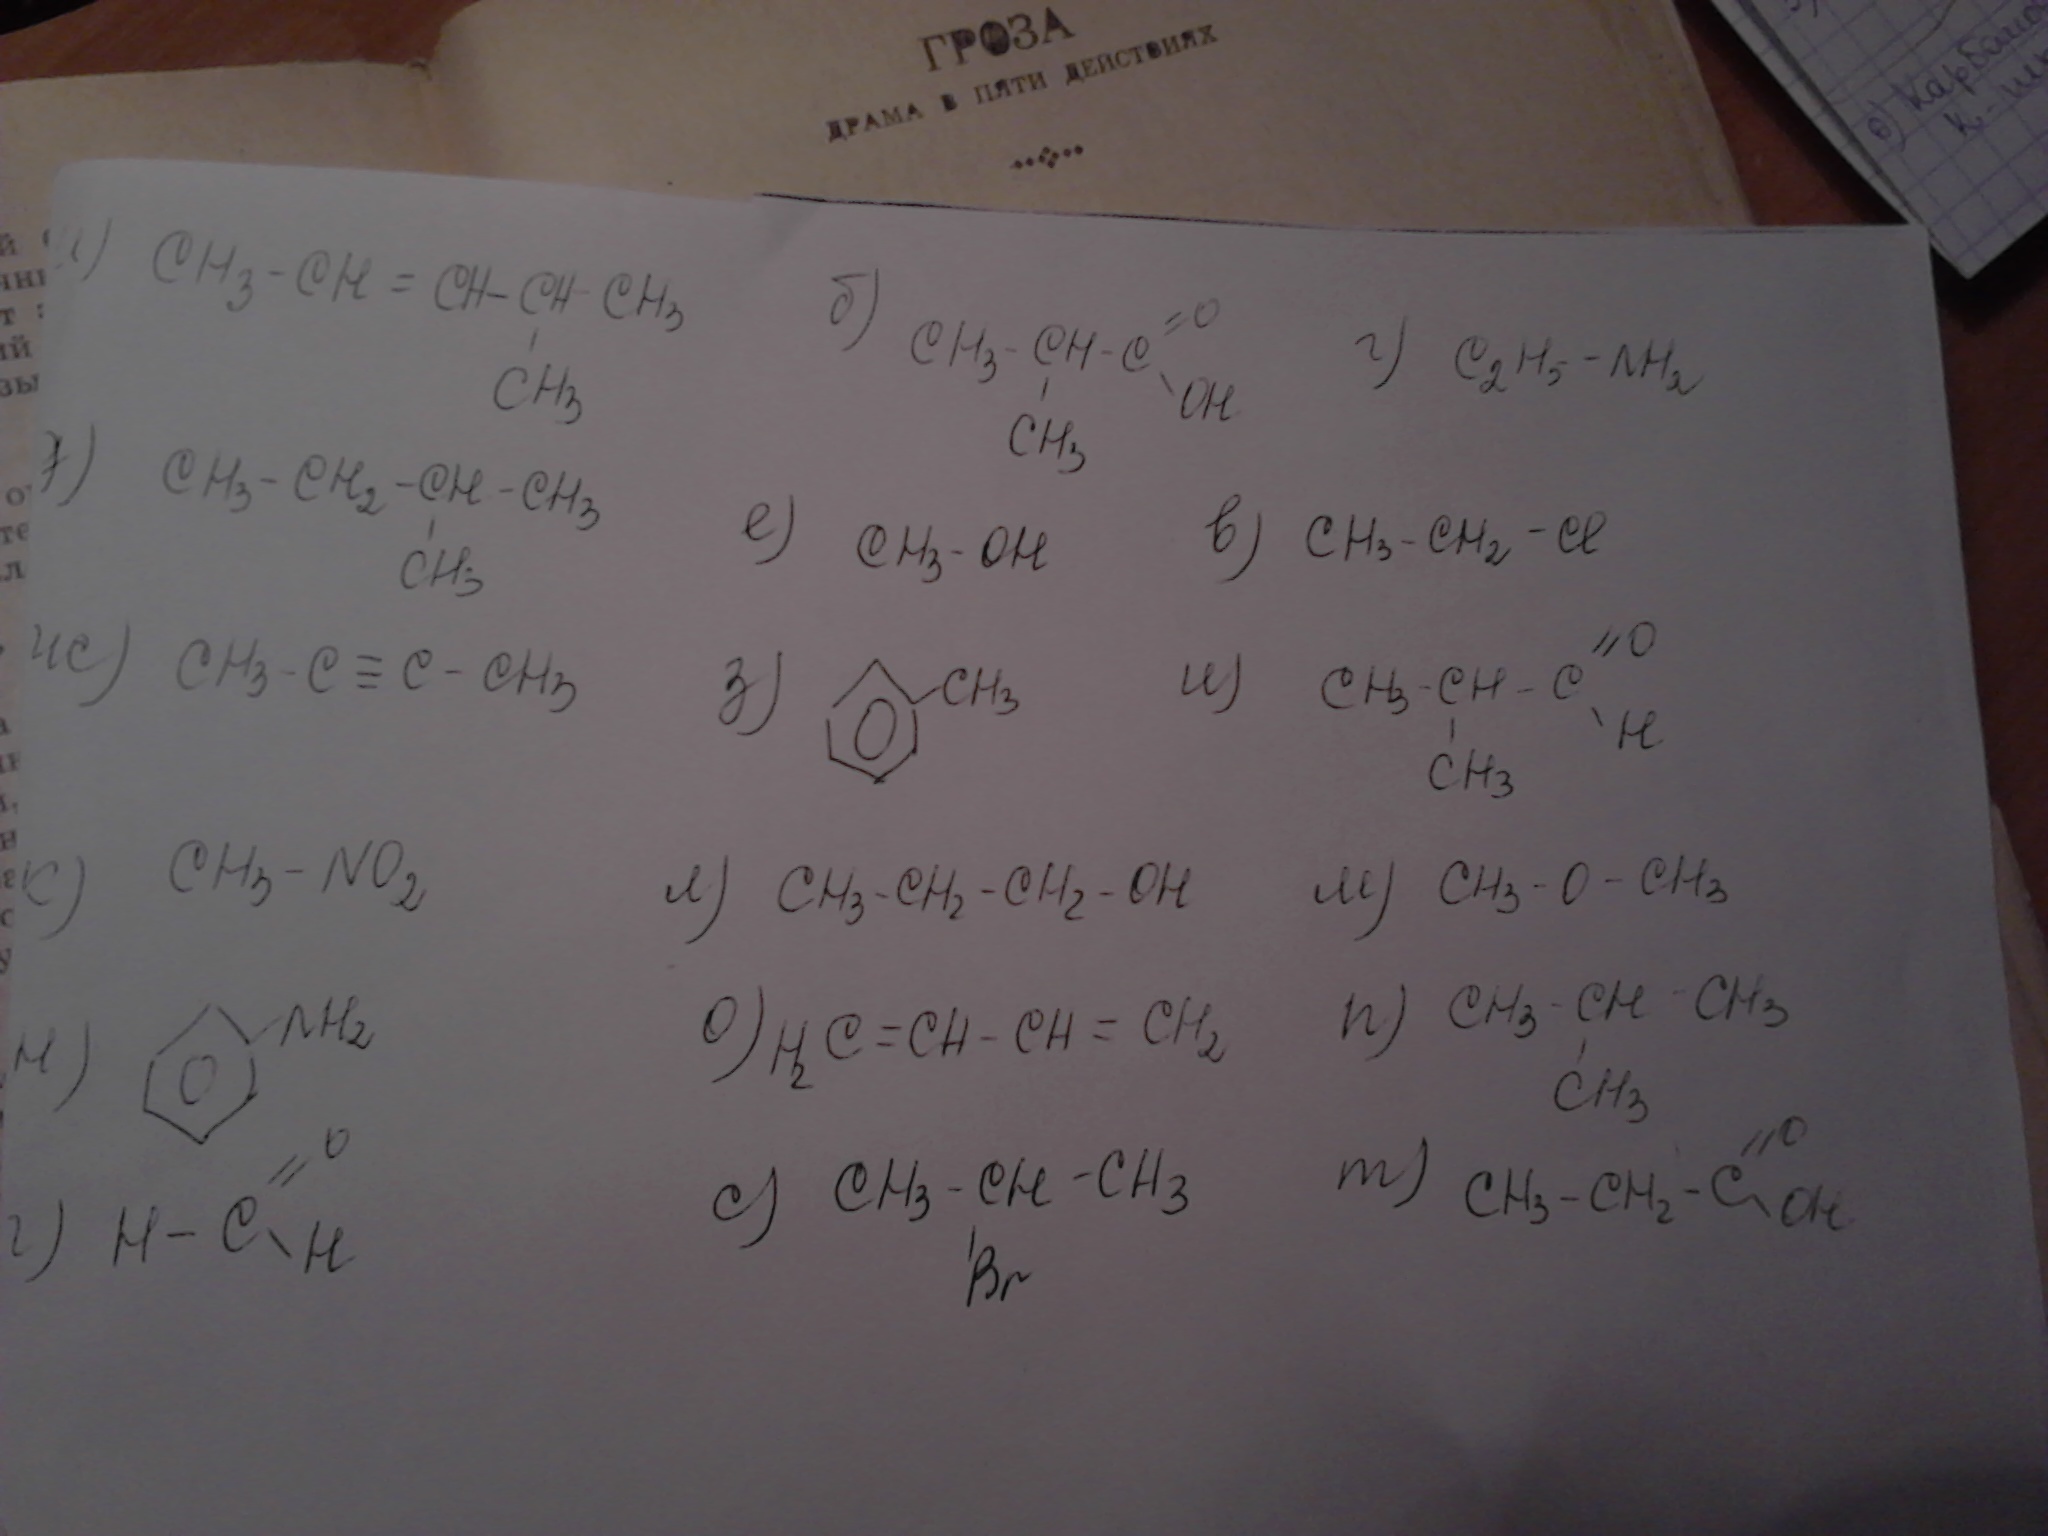 ГРОЗА
ДРАМА В ПЯТИ ДЕЙСТВИЯХ
е) Карбоно
CH3-CH=CH-CH-CH3
CH3
б) CH3-CH-C=O
OH
CH3
г) C2H5-NH2
CH3-CH2-CH-CH3
CH3
е) CH3-OH
в) CH3-CH2-Cl
ж) CH3-C≡C-CH3
з) CH3
и) CH3-CH-C=O
H
CH3
к) CH3-NO2
л) CH3-CH2-CH2-OH
м) CH3-O-CH3
н) NH2
о) H2C=CH-CH=CH2
п) CH3-CH-CH3
CH3
H-C=O
H
с) CH3-CH-CH3
Br
т) CH3-CH2-C=O
OH